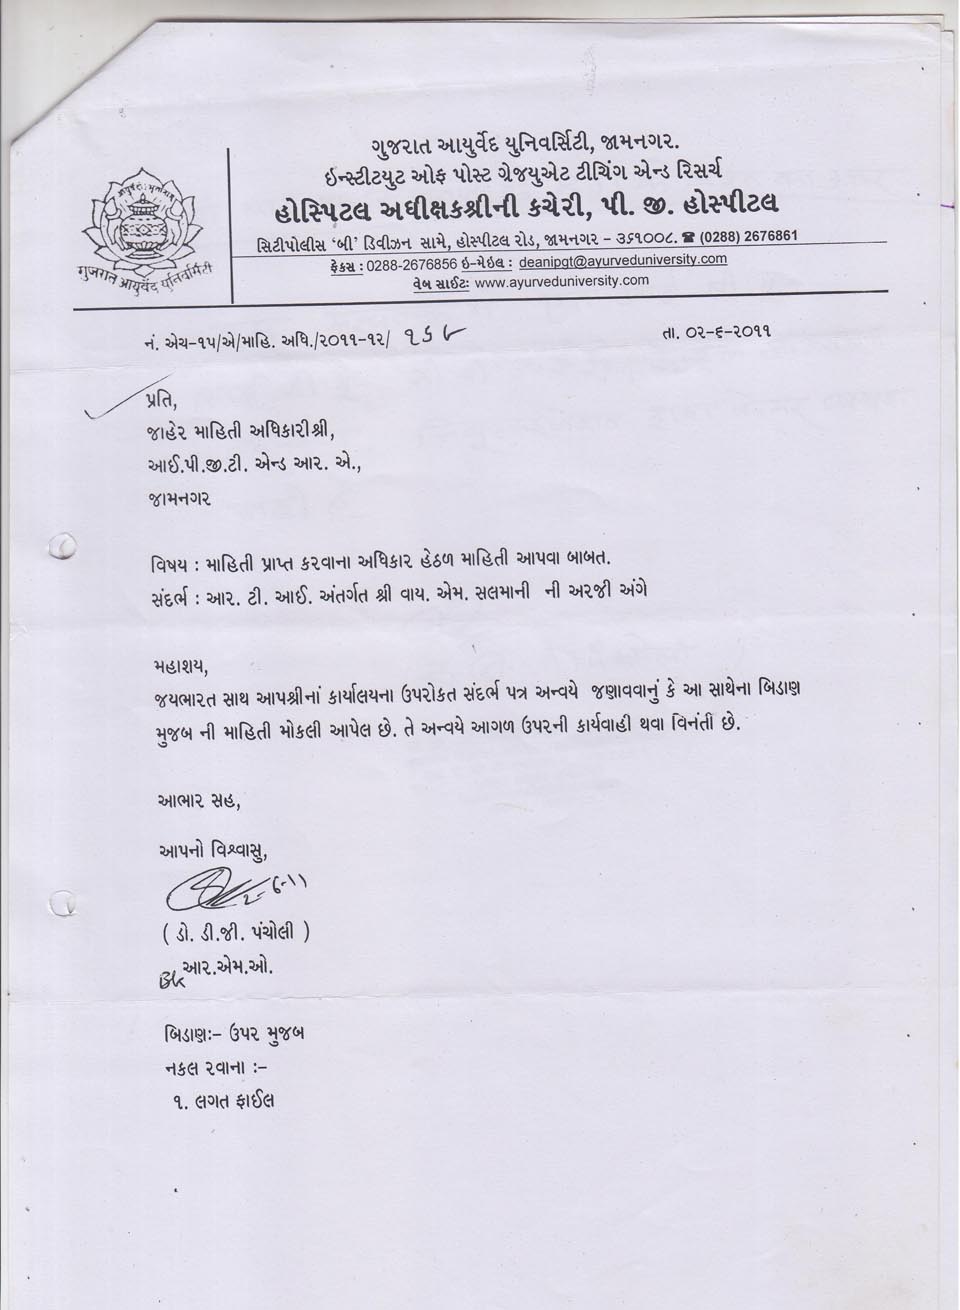 ગુજરાત આયુર્વેદ યુનિવર્સિટી, જામનગર.
ઇન્સ્ટીટયુટ ઓફ પોસ્ટ ગ્રેજયુએટ ટીચિંગ એન્ડ રિસર્ચ
હોસ્પિટલ અધીક્ષકશ્રીની કચેરી, પી. જી. હોસ્પીટલ
સિટીપોલીસ ‘બી’ ડિવીઝન સામે, હોસ્પીટલ રોડ, જામનગર – ૩૬૧૦૦૮. ☎ (0288) 2676861
ફેકસ : 0288-2676856 ઇ-મેઇલ : deanipgt@ayurveduniversity.com
વેબ સાઈટઃ www.ayurveduniversity.com
ગુજરાત આયુર્વેદ યુનિવર્સિટી
નં. એચ-૧૫/એ/માહિ. અધિ./૨૦૧૧-૧૨/
તા. ૦૨-૬-૨૦૧૧
પ્રતિ,
જાહેર માહિતી અધિકારીશ્રી,
આઈ.પી.જી.ટી. એન્ડ આર. એ.,
જામનગર
વિષય : માહિતી પ્રાપ્ત કરવાના અધિકાર હેઠળ માહિતી આપવા બાબત.
સંદર્ભ : આર. ટી. આઈ. અંતર્ગત શ્રી વાય. એમ. સલમાની ની અરજી અંગે
મહાશય,
જયભારત સાથ આપશ્રીનાં કાર્યાલયના ઉપરોકત સંદર્ભ પત્ર અન્વયે જણાવવાનું કે આ સાથેના બિડાણ
મુજબ ની માહિતી મોકલી આપેલ છે. તે અન્વયે આગળ ઉપરની કાર્યવાહી થવા વિનંતી છે.
આભાર સહ,
આપનો વિશ્વાસુ,
2-6-11
( ડો. ડી.જી. પંચોલી )
આર.એમ.ઓ.
બિડાણઃ– ઉપર મુજબ
નકલ રવાના :–
૧. લગત ફાઈલ